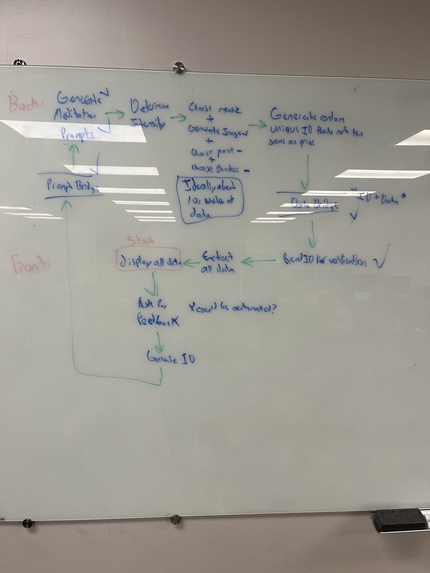 Back:
Generate
Meditation
Prompts
Determine
Intensity
Choose music
+
Generate Images
+
choose poses
+
choose shades
Generate random
unique ID thats not the
same as prior
Ideally, about
10s worth of
data
Prompt Bridge
Data Bridge
"ID + Data"
Front:
Start
Display all data
Extract
all data
Read ID for verification
Ask for
Feedback
*could be automated?
Generate ID